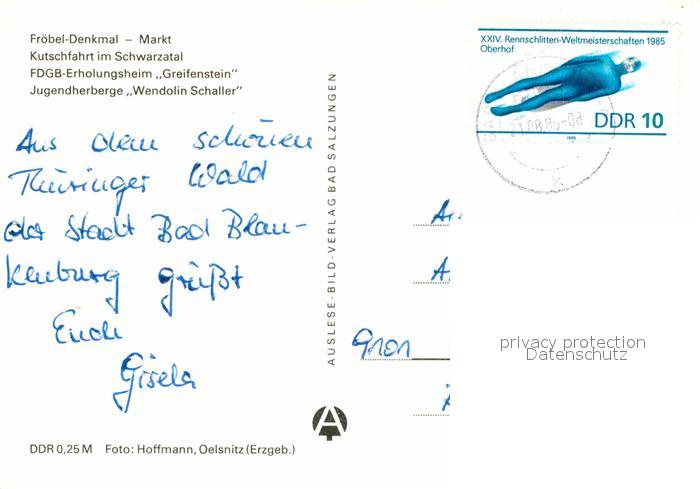 Fröbel-Denkmal – Markt
Kutschfahrt im Schwarzatal
FDGB-Erholungsheim „Greifenstein"
Jugendherberge „Wendolin Schaller"
XXIV. Rennschlitten-Weltmeisterschaften 1985
Oberhof
DDR 10
1985
Aus dem schönen
Thüringer Wald
der Stadt Bad Blan-
kenburg grüßt
Euch
Gisela
AUSLESE-BILD-VERLAG BAD SALZUNGEN
A
A
9101
privacy protection
Datenschutz
DDR 0,25 M Foto: Hoffmann, Oelsnitz (Erzgeb.)